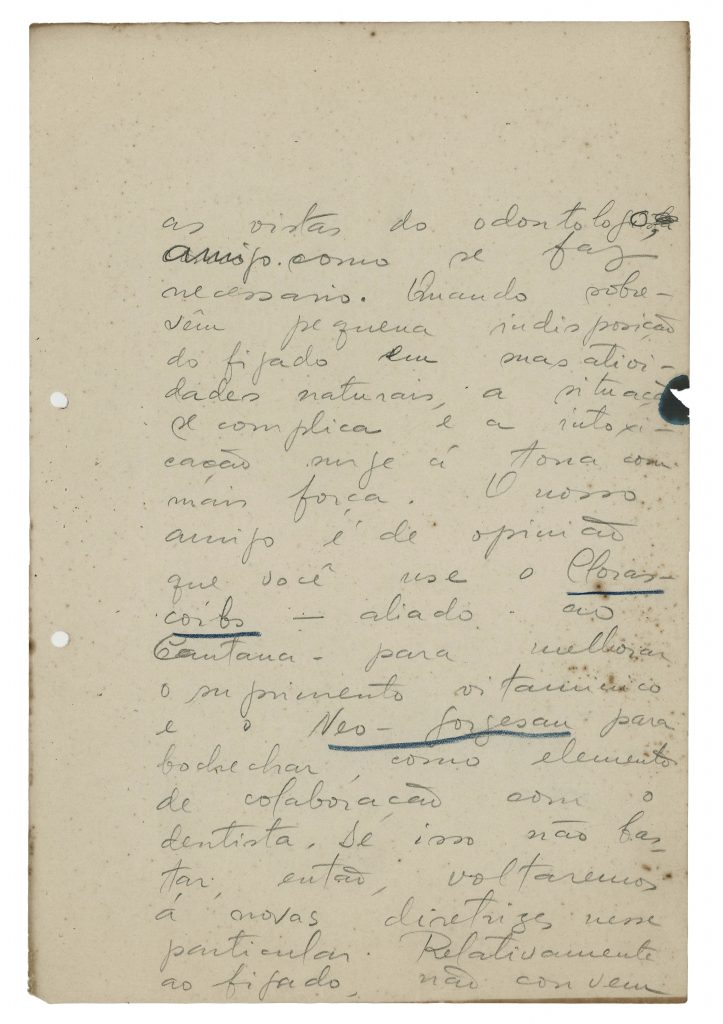 as vistas do odontologo,
amigo. como se faz
necessario. Quando sobre-
vêm pequena indisposição
do figado em suas ativi-
dades naturais, a situação
se complica e a intoxi-
cação surge á tona com
mais força. O nosso
amigo é de opinião
que você use o Cloras-
corbs — aliado - ao
Cantana - para melhorar
o suprimento vitaminico
e o Neo-Gorgesan para
bochechar, como elemento
de colaboração com o
dentista. Se isso não bas-
tar, então, voltaremos
á novas diretrizes nesse
particular. Relativamente
ao figado, não convem